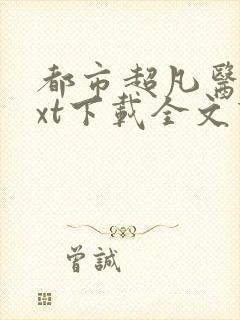 都市超凡醫
xt下載全文
曾誠